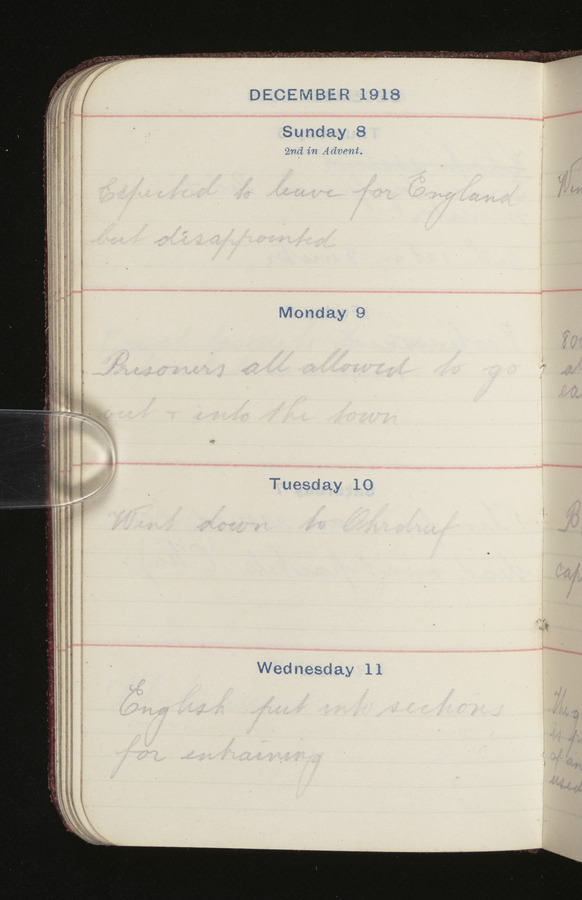 DECEMBER 1918
Sunday 8
2nd in Advent.
Expected to leave for England
but disappointed
Monday 9
Prisoners all allowed to go
out & into the town
Tuesday 10
Went down to Ohrdruf
Wednesday 11
English put into sections
for entraining